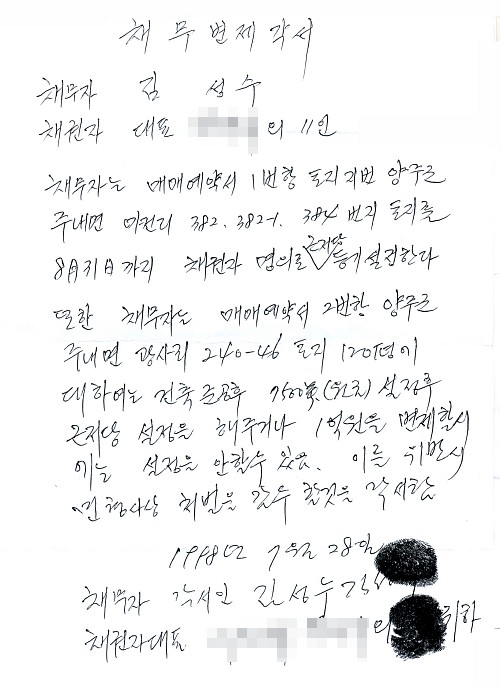 채무변제각서
채무자 김성수
채권자 대표 의 11인
채무자는 매매예약서 1번항 토지지번 양주군
주내면 마전리 382. 382-1. 384 번지 토지를
8月31日까지 채권자 명의로 근저당 등기설정한다
또한 채무자는 매매예약서 2번항 양주군
주내면 광사리 240-46 토지 120평에
대하여는 건축준공후 설정후
근저당 설정을 해주거나 1억원을 변제할시
에는 설정을 안할수 있다. 이를 위반시
민형사상 처벌을 감수 할것을 각서함
1998년 7월 28일
채무자 각서인 김성수
채권자대표 의 귀하